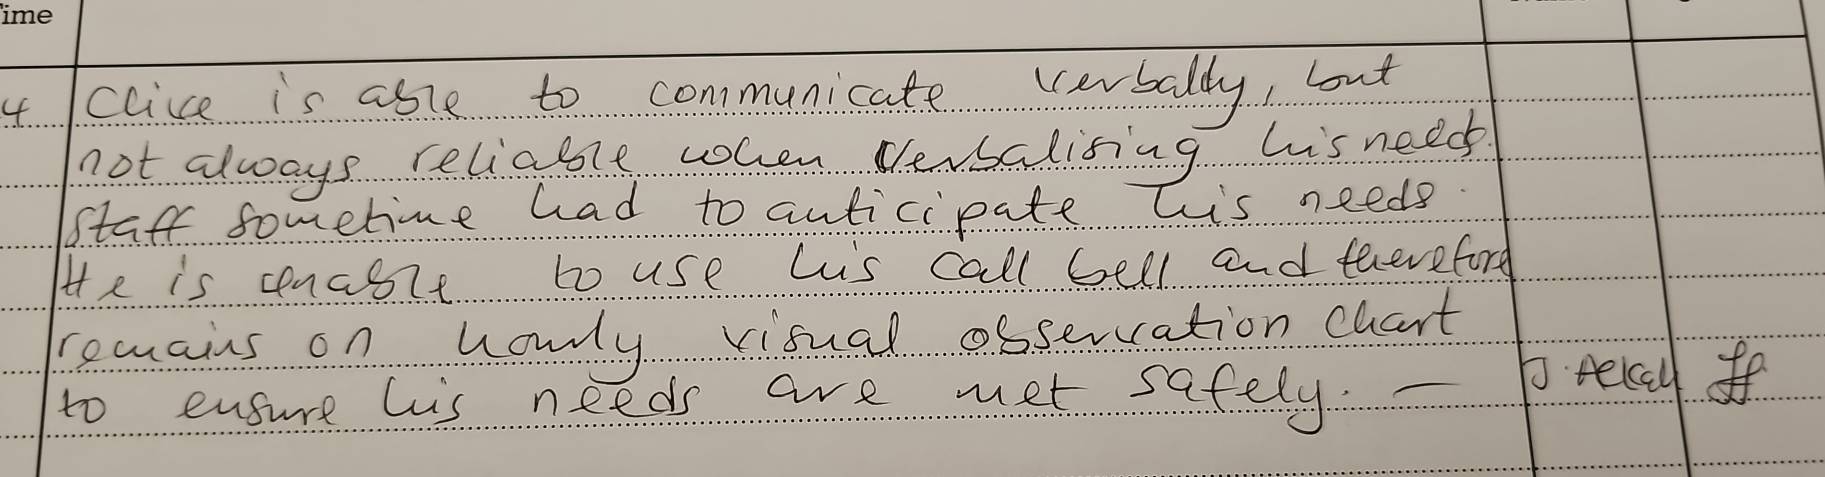 ime
4 Clive is able to communicate verbally, but
not always reliable when verbalising his needs.
Staff sometime had to anticipate his needs.
He is unable to use his call bell and therefore
remains on hourly visual observation chart
to ensure his needs are met safely. —